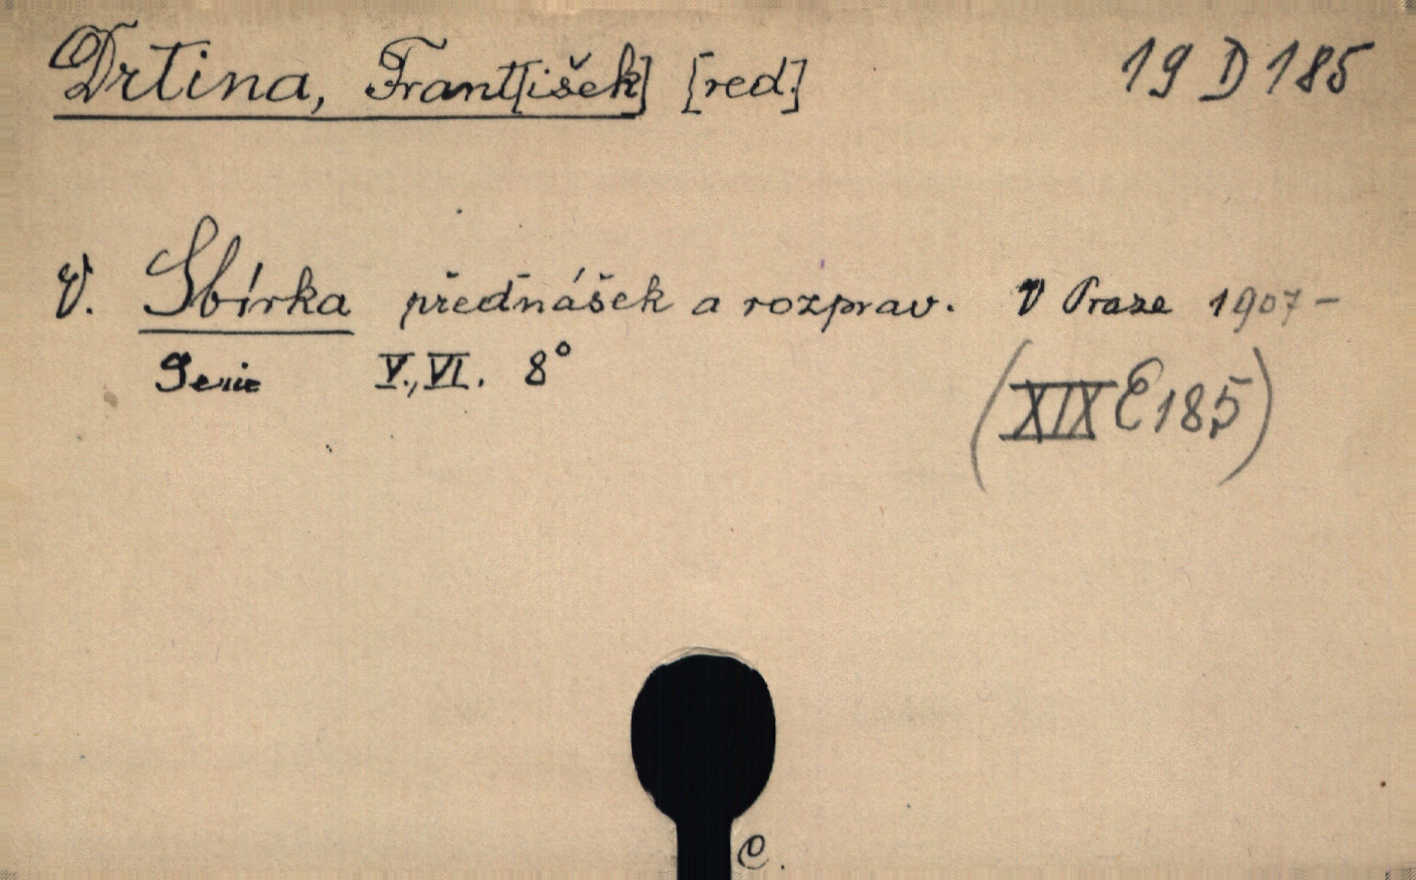 Drtina, Frant[išek] [red.] 19 D 185
V. Sbírka přednášek a rozprav. V Praze 1907 -
Serie V., VI. 8°
(XIX E 185)
C.